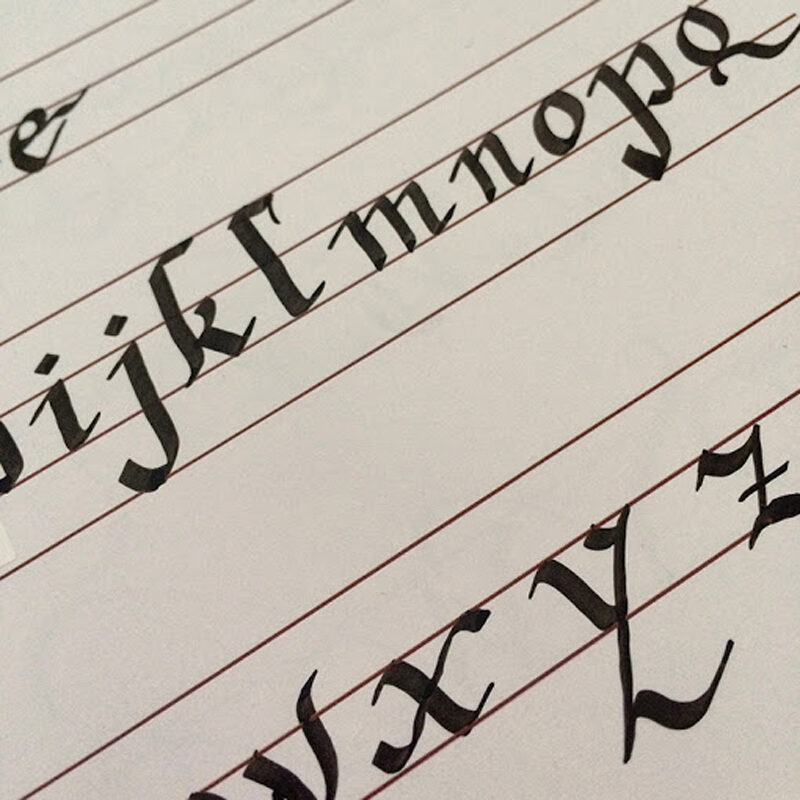 e
ijklmnopq
wxyz